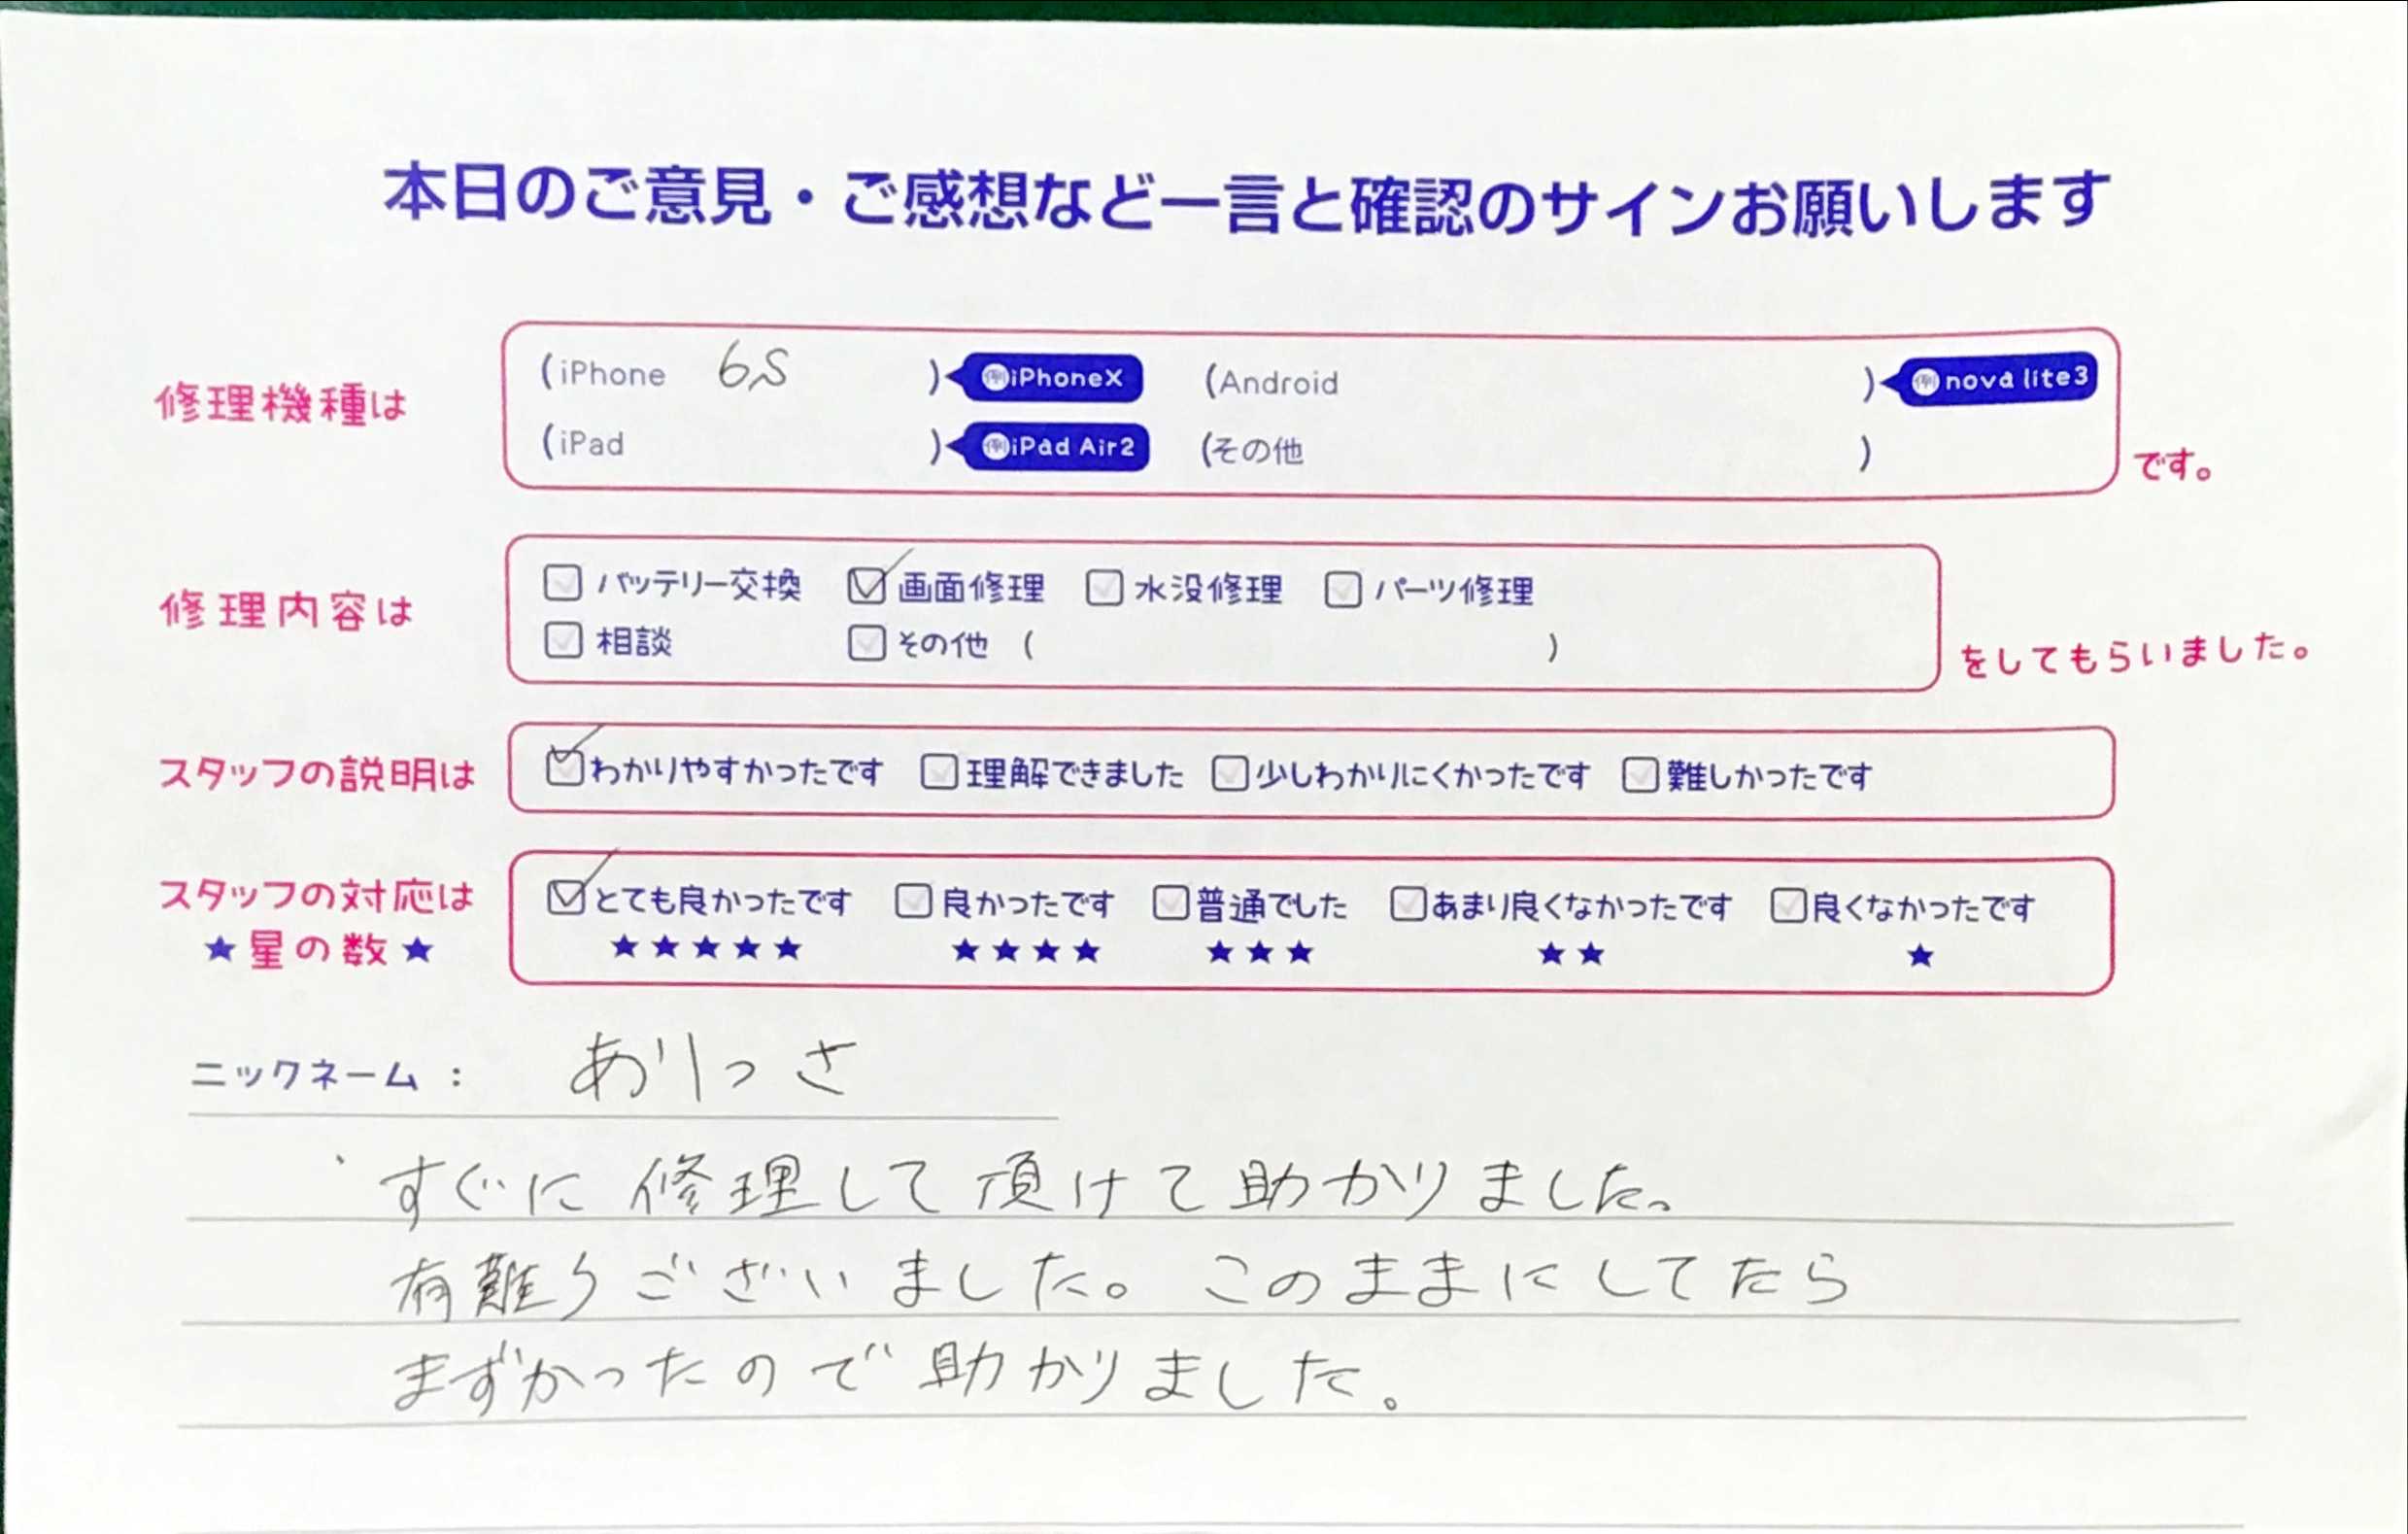 本日のご意見・ご感想など一言と確認のサインお願いします
修理機種は
(iPhone 6S ) 例iPhoneX (Android ) 例nova lite3
(iPad ) 例iPad Air2 (その他 )
です。
修理内容は
バッテリー交換 画面修理 水没修理 パーツ修理
相談 その他 ( )
をしてもらいました。
スタッフの説明は
わかりやすかったです 理解できました 少しわかりにくかったです 難しかったです
スタッフの対応は
★星の数★
とても良かったです 良かったです 普通でした あまり良くなかったです 良くなかったです
★★★★★ ★★★★ ★★★ ★★ ★
ニックネーム： ありっさ
すぐに修理して頂けて助かりました。
有難うございました。このままにしてたら
まずかったので助かりました。